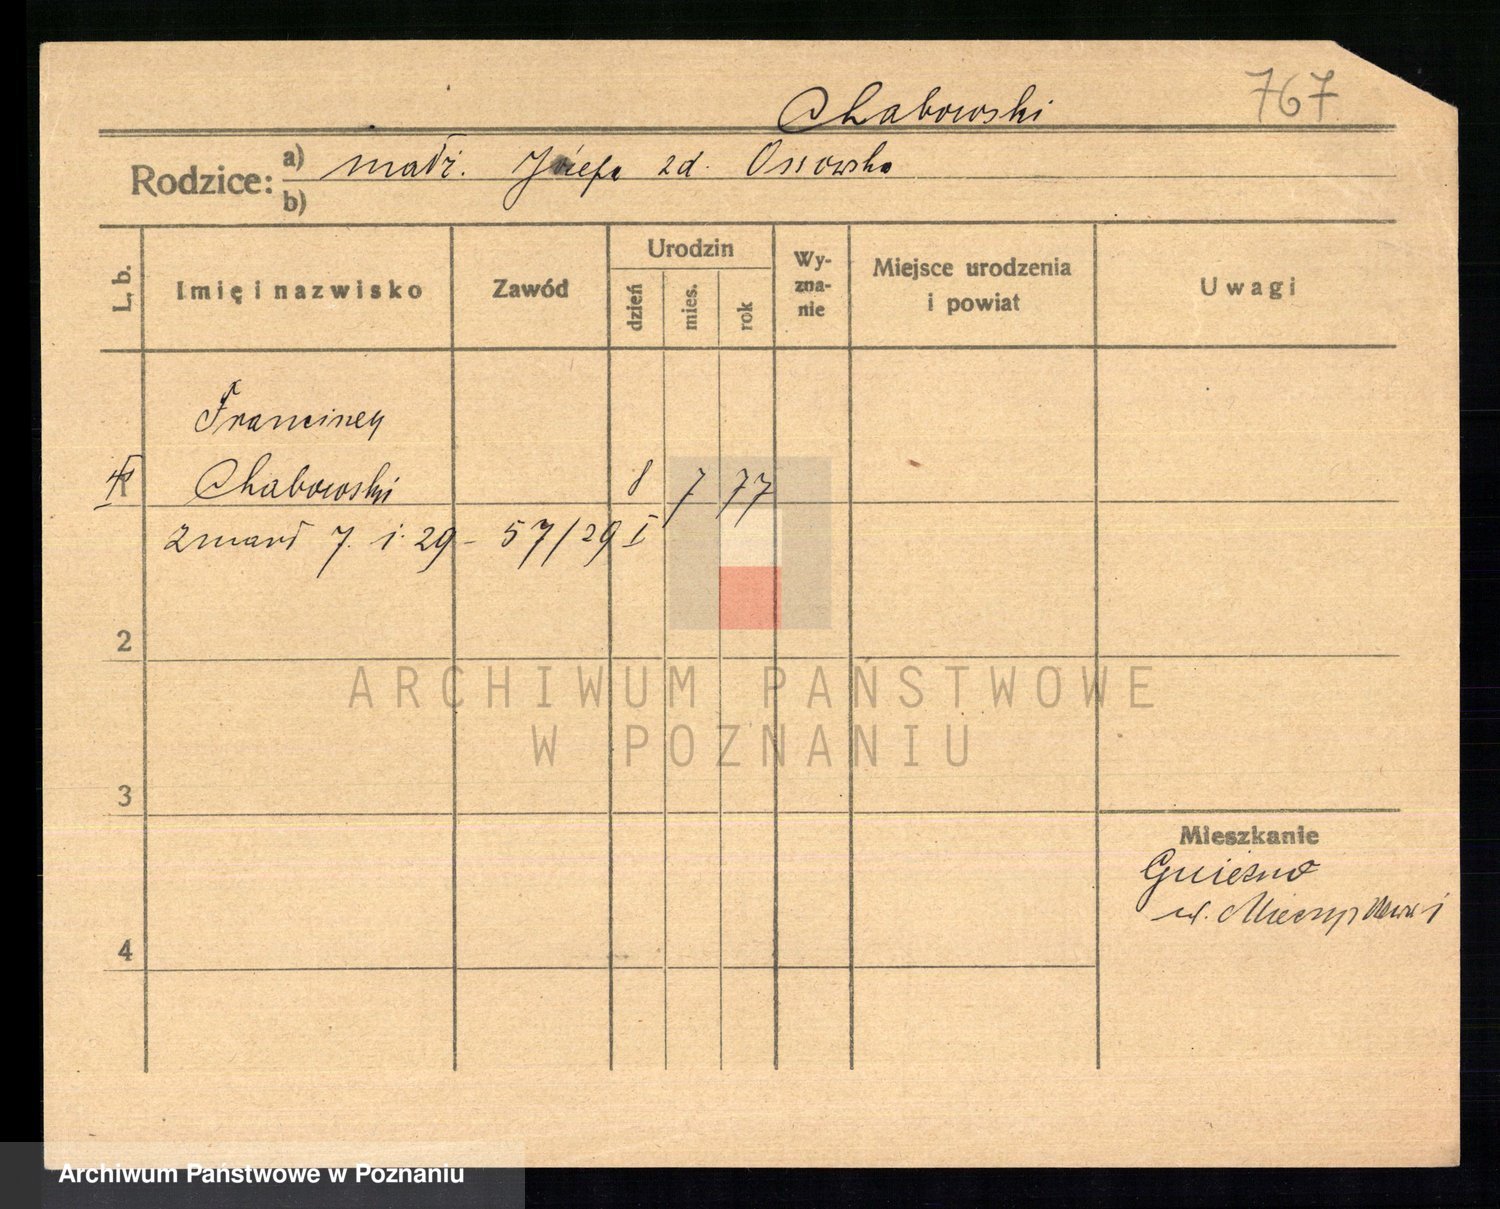 767
Chabowski
Rodzice: a) małż. Józefa zd. Ossowska
b)
L. b.
Imię i nazwisko
Zawód
Urodzin
dzień
mies.
rok
Wy-
zna-
nie
Miejsce urodzenia
i powiat
Uwagi
Franciszek
Chabowski 8 7 77
zmarł 7. 1. 29 - 57/29 I
2
3
4
Mieszkanie
Gniezno
ul.
ARCHIWUM PAŃSTWOWE
W POZNANIU
Archiwum Państwowe w Poznaniu